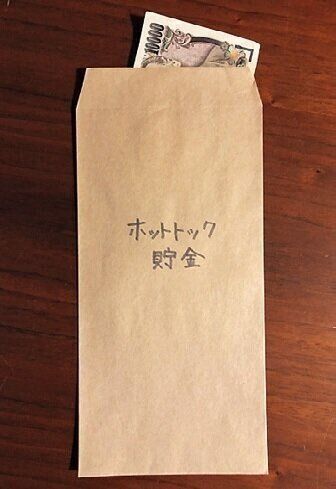 10000
ホットトック
貯金